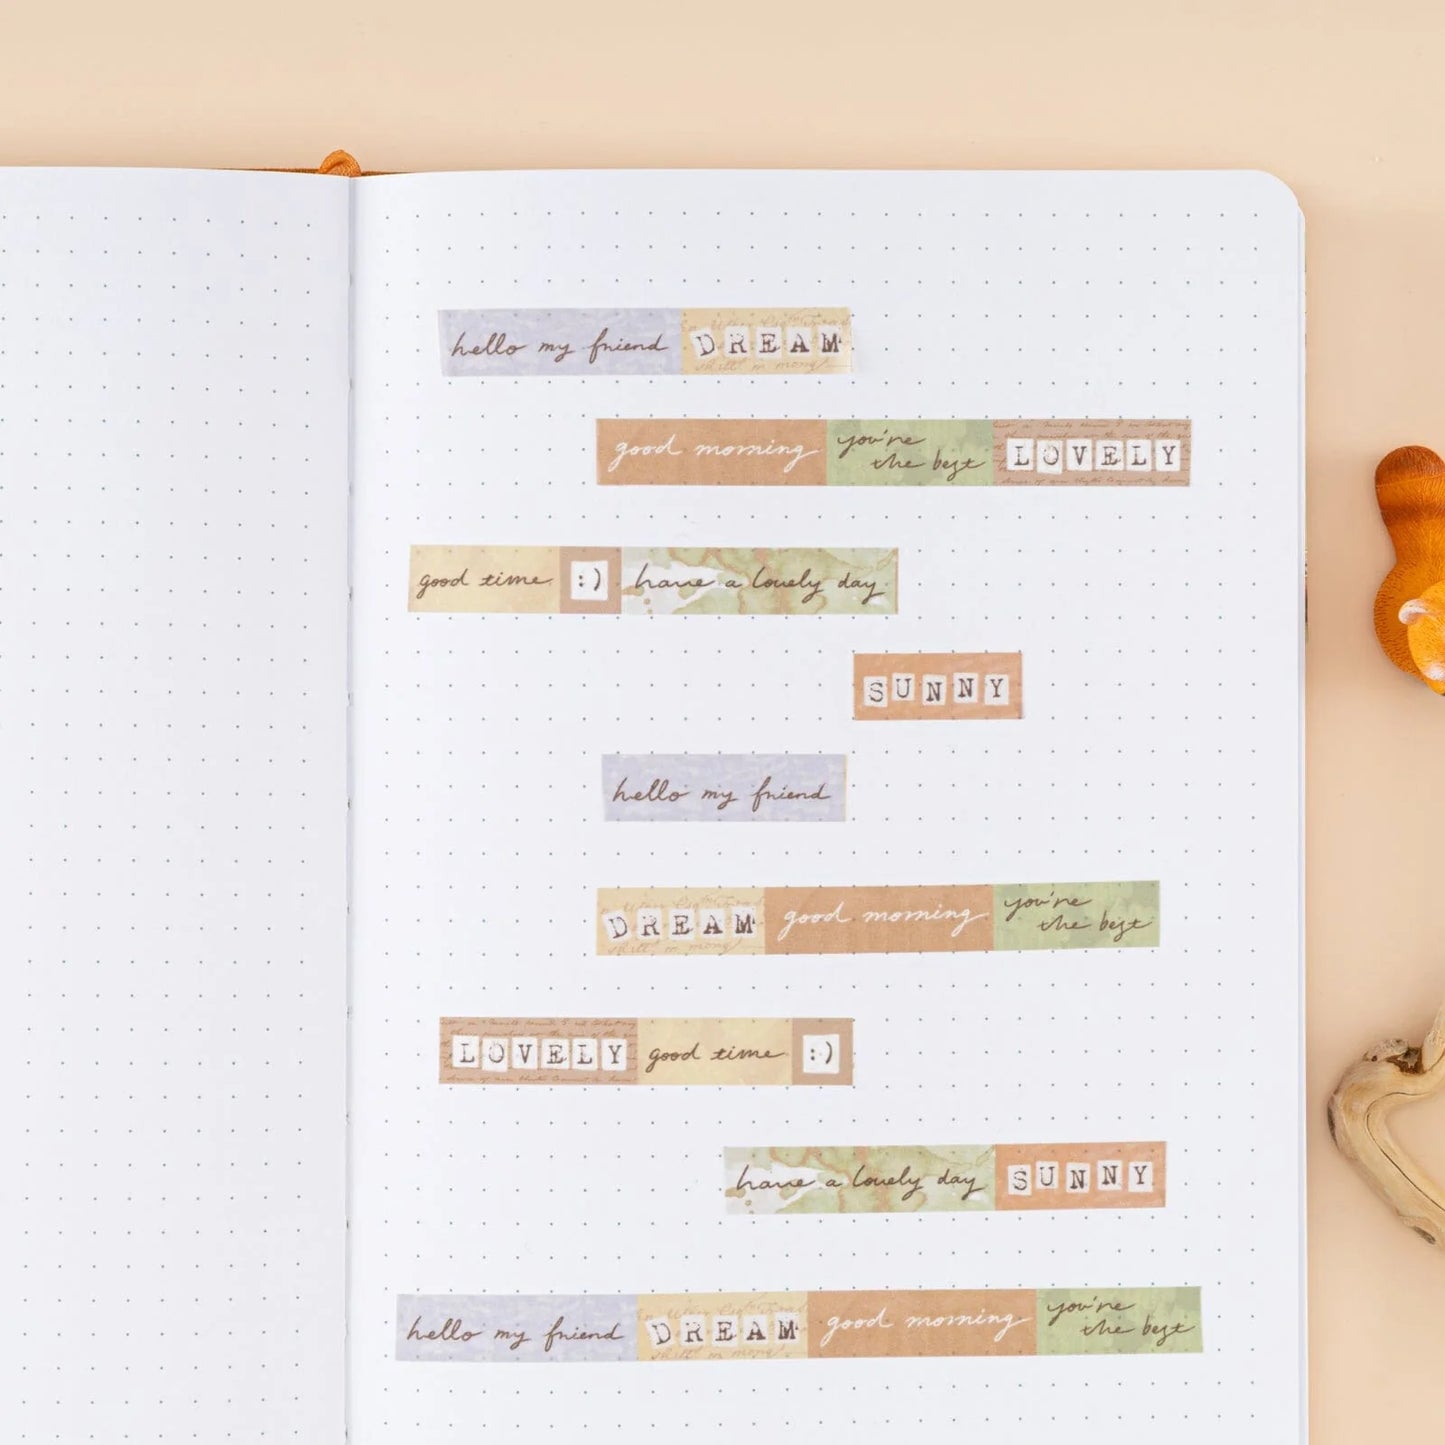 hello my friend DREAM
good morning you're
the best LOVELY
good time :) have a lovely day
SUNNY
hello my friend
DREAM good morning you're
the best
LOVELY good time :)
have a lovely day SUNNY
hello my friend DREAM good morning you're
the best